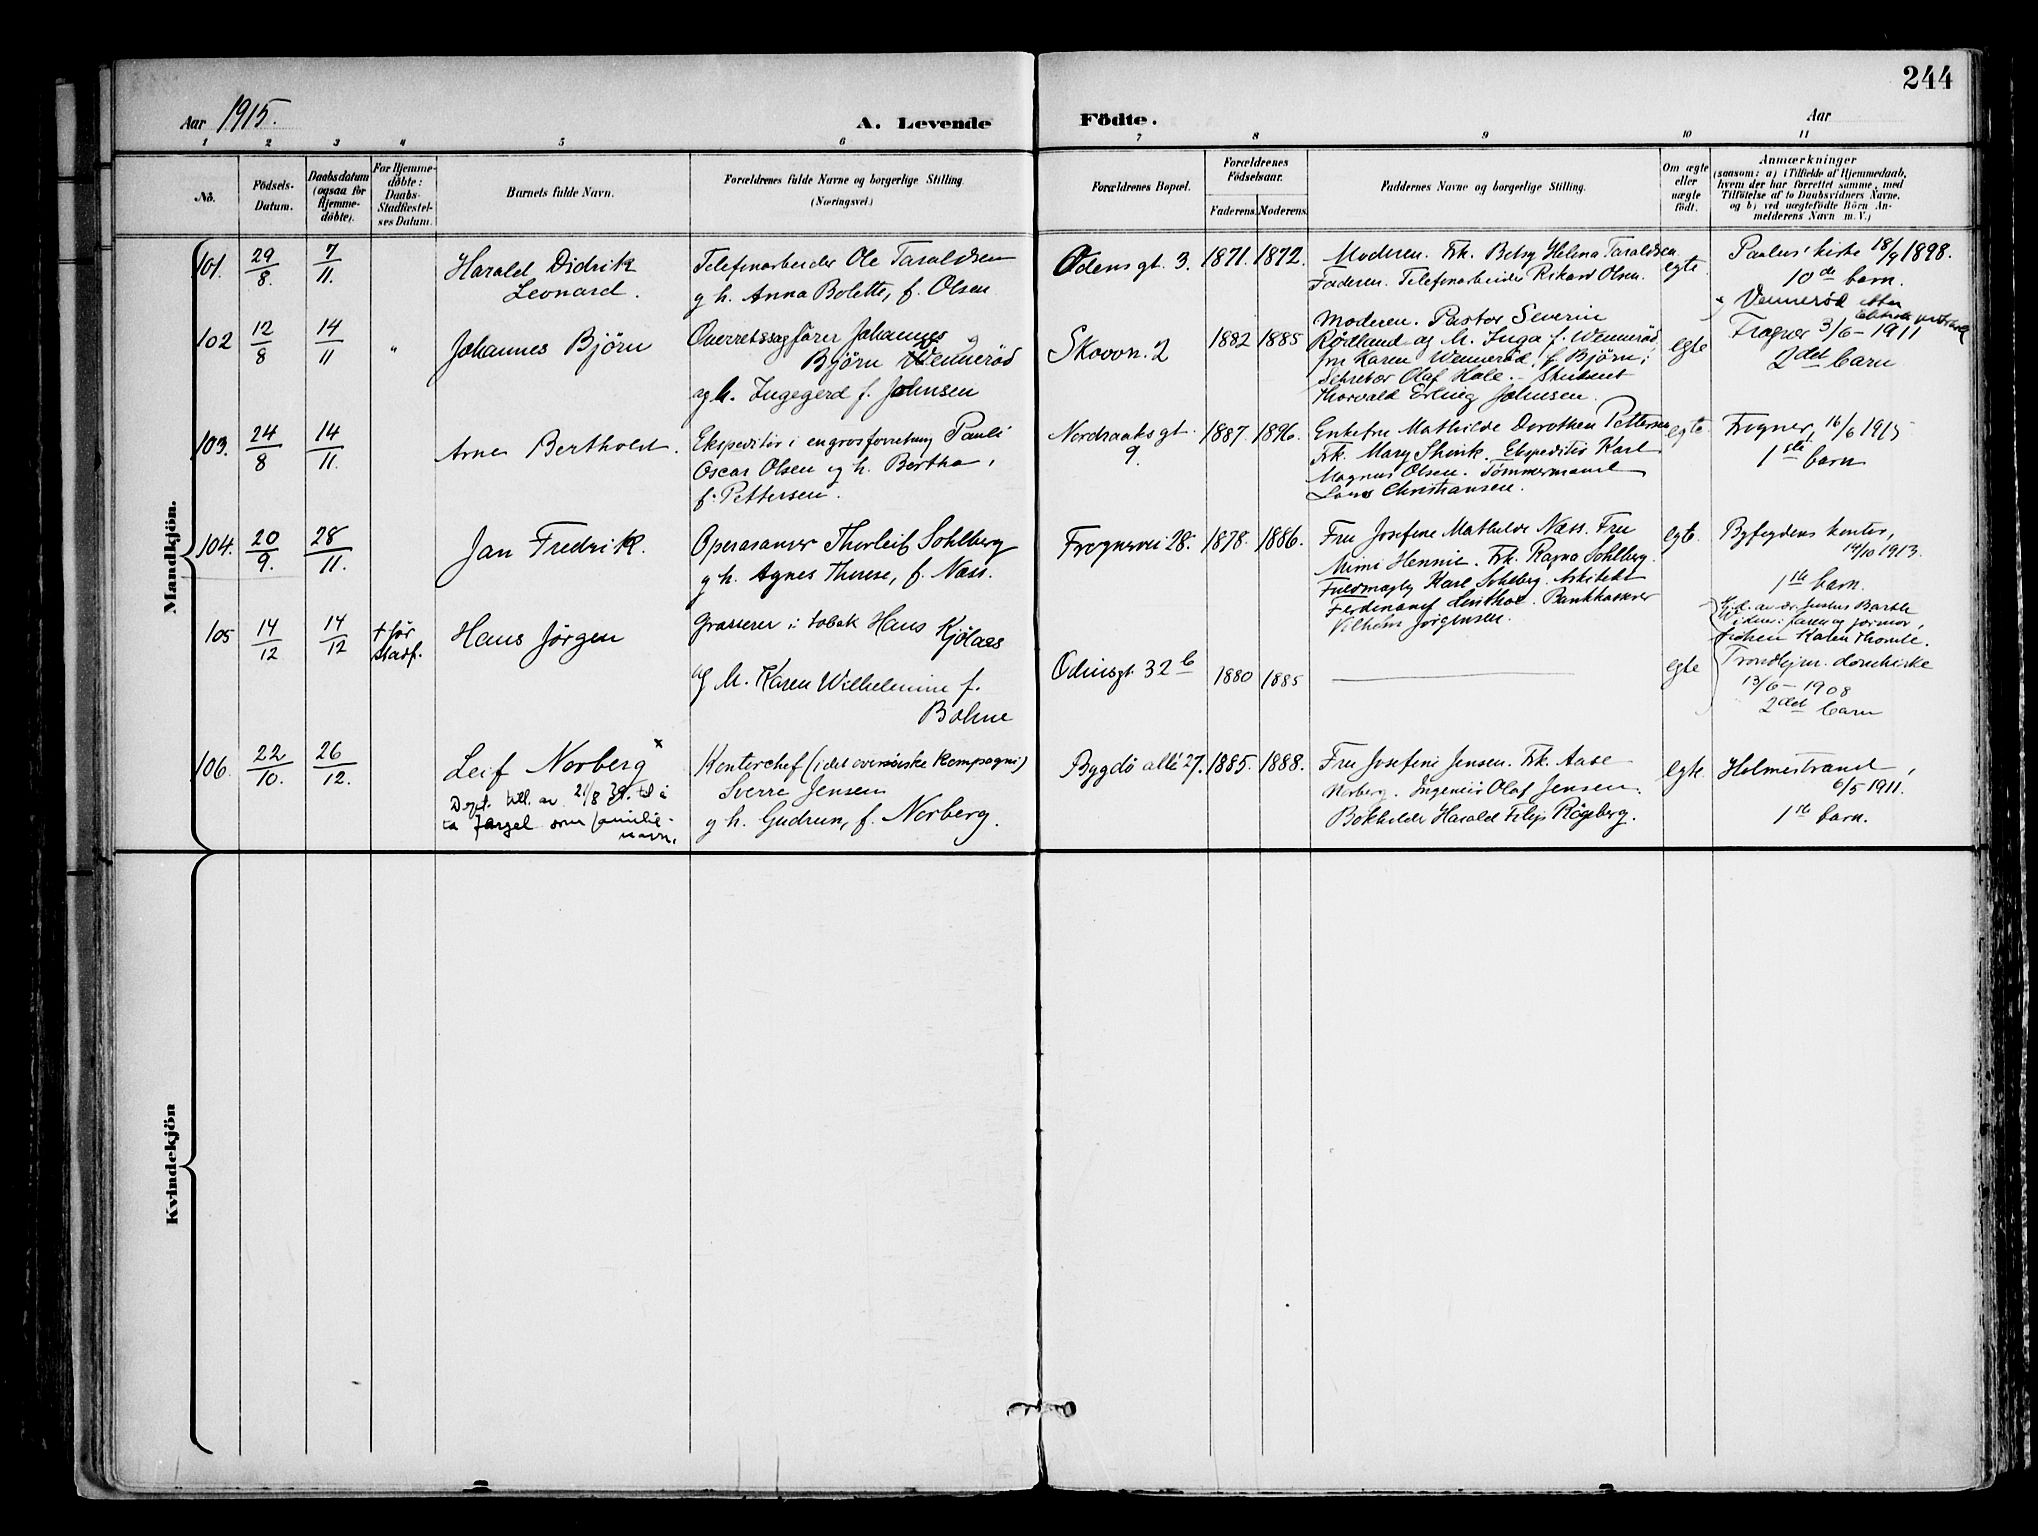 244
Aar 1915.
A. Levende Födte.
Aar
1 2 3 4 5 6 7 8 9 10 11
No.
Födsels-
Datum.
Daabsdatum
(ogsaa for
Hjemme-
döbte).
For Hjemme-
döbte:
Daabs-
Stadfæstel-
ses Datum.
Barnets fulde Navn.
Forældrenes fulde Navne og borgerlige Stilling.
(Næringsvei.)
Forældrenes Bopæl.
Forældrenes
Födselsaar.
Faderens. Moderens.
Faddernes Navne og borgerlige Stilling.
Om ægte
eller
uægte
födt.
Anmærkninger
(saasom: a) i Tilfælde af Hjemmedaab,
hvem der har forrettet samme, med
Tilföielse af to Daabsvidners Navne,
og b) ved uægtefödte Börn An-
melderens Navn m. V.)
Mandkjön.
101. 29/8. 7/11.
Harald Didrik
Leonard.
Telefonarbeider Ole Taraldsen
g h. Anna Bolette, f. Olsen
Odens gt. 3. 1871. 1872.
Moderen. Frk. Betsy Helena Taraldsen
Faderen. Telefonarbeider Rikard Olsen.
egte.
Paulus' kirke 18/9 1898.
10de barn.
102 12/8 14/11 "
Johannes Björn
Overretssagförer Johannes
Björn Wennerød
og h. Ingegerd f. Johnsen
Skovvn. 2 1882 1885
Moderen. Pastor Severin
Rødland og h. Inga f. Wennerød,
fru Karen Wennerød f. Bjørn;
Sekretær Olaf Hole. - Student
Thorvald Erling Johnsen.
egte
x Vennerød etter
Frogner 3/6 - 1911
2det barn
103. 24/8 14/11.
Arne Berthold.
Ekspeditör i engrosforretning Pauli
Oscar Olsen og h. Bertha,
f. Pettersen.
Nordraaks gt. 9. 1887. 1896.
Enkefru Mathilde Dorothea Pettersen
Frk. Mary Skink. Ekspeditör Karl
Magnus Olsen. Tömmermand
Lars Christiansen.
egte.
Frogner, 16/6 1915
1ste barn
104. 20/9. 28/11.
Jan Fredrik.
Operasanger Thorleif Sohlberg
g h. Agnes Therese, f. Næss.
Frognervei 28. 1878. 1886.
Fru Josefine Mathilde Næss. Fru
Mimi Hennie. Frk. Ragna Sohlberg.
Fuldmægtig Karl Sohlberg. Arkitekt
Ferdinand
Vilhelm Jörgensen.
egte.
Byfogdens kontor,
14/10 1913.
1ste barn.
105 14/12 14/12 † før
stadf.
Hans Jørgen
Grosserer i tobak Hans Kjölaas
og h. Karen Wilhelmine f.
Bohne
Odinsgt. 32 b 1880 1885
egte
frøken Karen Thomle.
Trondhjem. domkirke
13/6 - 1908
2det barn
106. 22/10. 26/12.
Leif Norberg x
Dept. till. av 21/8 39. til å
ta Jarsel som familie-
navn.
Kontorchef (i det oversöiske kompagni)
Sverre Jensen
g h. Gudrun, f. Norberg.
Bygdö allé 27. 1885. 1888.
Fru Josefine Jensen. Frk. Aase
Norberg. Ingeniör Olaf Jensen.
Bokholder Harald Filip Rögeberg.
egte.
Holmestrand,
6/5 1911.
1ste barn.
Kvindekjön